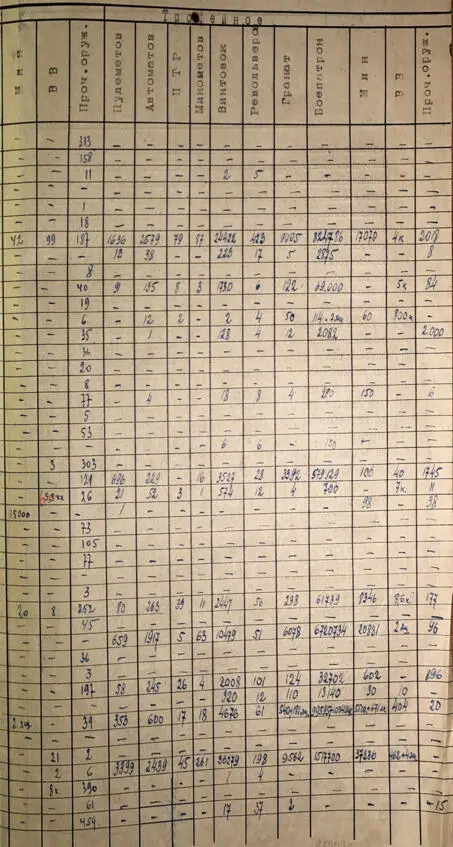 Трофейное
Мин ВВ Проч.оруж. Пулеметов Автоматов ПТР Минометов Винтовок Револьвера Гранат Боепатрон Мин ВВ Проч.оруж.
- - 313 - - - - - - - - - - -
- 158 - - - - - - - - - - -
- - 11 - - - - 2 5 - - - - -
- - - - - - - - - - - - - -
- - 1 - - - - - - - - - - -
- - 18 - - - - - - - - - - -
42 99 187 1636 2579 79 87 423 17079 4к 2018
- - - 13 38 - - 223 17 5 2875 - - 8
- - 8 - - - - - - - - - - -
- - 40 91 135 8 3 1730 6 122 69.000 - 5к 84
- - 19 - - - - - - - - - - -
- - 6 - 12 2 - 2 4 50 60 800к -
- - 35 - 1 - - 128 4 12 2082 - - 2.000
- - 36 - - - - - - - - - - -
- - 20 - - - - - - - - - - -
- - 8 - - - - - - - - - - -
- - 77 - 4 - - 18 8 4 150 - 6
- - 5 - - - - - - - - - - -
- - 53 - - - - - - - - - - -
- - - - - - - 6 6 - 150 - - -
- 3 303 - - - - - - - - - - -
- - 129 696 229 - 16 3527 28 3392 579129 106 40 1745
- 26 21 52 3 1 574 12 4 700 - 7к 11
- - 1 - - - - - - - 98 - 38
- - 73 - - - - - - - - - - -
- - 105 - - - - - - - - - - -
- - 77 - - - - - - - - - - -
- - - - - - - - - - - - - -
- - 3 - - - - - - - - - - -
20 8 252 80 263 39 11 2447 50 238 61739 8346 177
- - 45 - - - - - - - - - - -
- - - 659 1917 5 63 10479 51 6078 6720734 20881 96
- - 36 - - - - - - - - - - -
- - 3 - - - - - - - - - - -
- - 197 58 245 26 4 2008 101 124 32702 602 - 196
- - - - - - - 320 12 110 13140 30 10 -
- 39 353 600 17 18 4676 61 404 20
- - - - - - - - - - - - - -
- 21 2 3399 2439 45 261 36279 198 9562 1517700 37230
- 2 6 - - - - 1 4 - - - - -
- 8к 390 - - - - - - - - - - -
- - 61 - - - - 17 37 2 - - - 15
- - 454 - - - - - - - - - - -